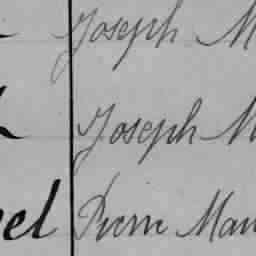 Joseph M
Joseph M
el Pierre Mau